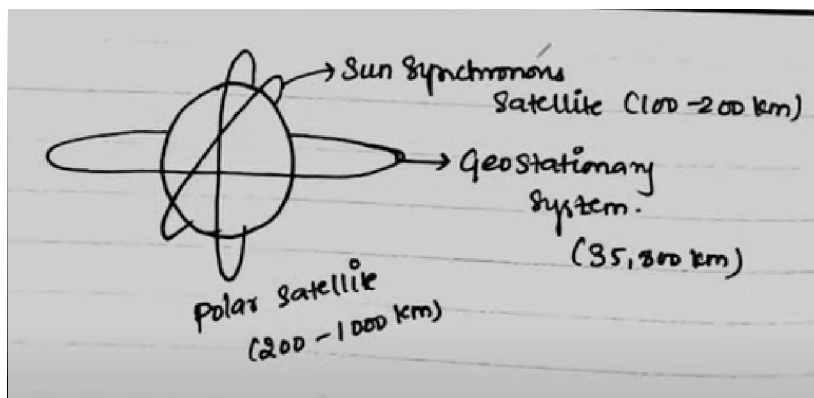 Sun Synchronons
Satellite (100-200 km)
GeoStationary
System.
(35,800 km)
Polar Satellite
(200-1000 km)